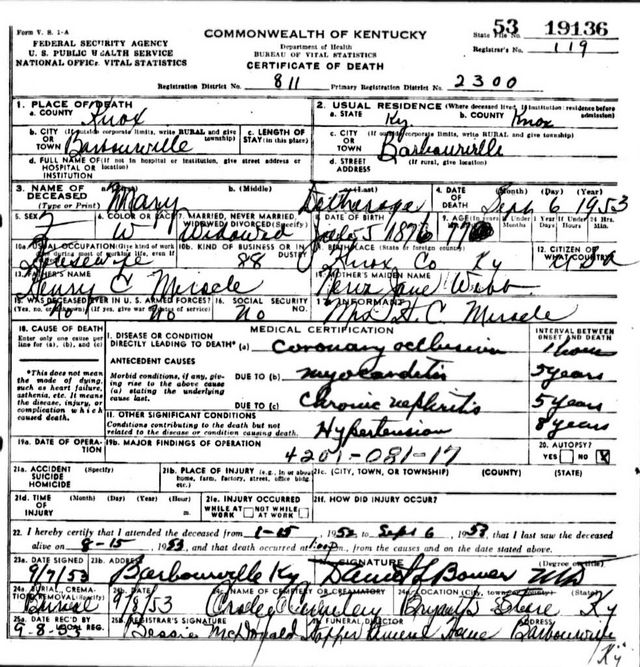 Form V. S. 1-A
FEDERAL SECURITY AGENCY
U. S. PUBLIC HEALTH SERVICE
NATIONAL OFFICE VITAL STATISTICS
COMMONWEALTH OF KENTUCKY
Department of Health
BUREAU OF VITAL STATISTICS
CERTIFICATE OF DEATH
State File No. 53 19136
Registrar's No. 119
Registration District No. 811 Primary Registration District No. 2300
1. PLACE OF DEATH
a. COUNTY Knox
b. CITY (If outside corporate limits, write RURAL and give township) OR TOWN Barbourville
c. LENGTH OF STAY (in this place)
d. FULL NAME OF (If not in hospital or institution, give street address or location) HOSPITAL OR INSTITUTION
2. USUAL RESIDENCE (Where deceased lived. If institution: residence before admission)
a. STATE Ky b. COUNTY Knox
c. CITY (If outside corporate limits, write RURAL and give township) OR TOWN Barbourville
d. STREET ADDRESS (If rural, give location)
3. NAME OF DECEASED (Type or Print) a. (First) Mary b. (Middle) c. (Last)
4. DATE OF DEATH (Month) (Day) (Year) Sept 6 1953
5. SEX F
6. COLOR OR RACE W
7. MARRIED, NEVER MARRIED, WIDOWED, DIVORCED (Specify) Widowed
8. DATE OF BIRTH 5 1876
9. AGE If Under 1 Year Months Days If Under 24 Hrs. Hours Min.
10a. USUAL OCCUPATION (Give kind of work done during most of working life, even if retired) Housewife
10b. KIND OF BUSINESS OR INDUSTRY 88
11. BIRTHPLACE (State or foreign country) Knox Co Ky
12. CITIZEN OF WHAT COUNTRY? USA
13. FATHER'S NAME Henry C Miracle
14. MOTHER'S MAIDEN NAME Jane Webb
15. WAS DECEASED EVER IN U. S. ARMED FORCES? (Yes, no, or unknown) (If yes, give war or dates of service) No No
16. SOCIAL SECURITY NO. No
17. INFORMANT Mrs. H. C Miracle
18. CAUSE OF DEATH
Enter only one cause per line for (a), (b), and (c)
*This does not mean the mode of dying, such as heart failure, asthenia, etc. It means the disease, injury, or complication which caused death.
MEDICAL CERTIFICATION
INTERVAL BETWEEN ONSET AND DEATH
I. DISEASE OR CONDITION DIRECTLY LEADING TO DEATH* (a) coronary occlusion 1 hour
ANTECEDENT CAUSES
Morbid conditions, if any, giving rise to the above cause (a) stating the underlying cause last.
DUE TO (b) myocarditis 5 years
DUE TO (c) Chronic nephritis 5 years
II. OTHER SIGNIFICANT CONDITIONS
Conditions contributing to the death but not related to the disease or condition causing death. Hypertension 8 years
19a. DATE OF OPERATION
19b. MAJOR FINDINGS OF OPERATION 4201-081-17
20. AUTOPSY? YES NO X
21a. ACCIDENT SUICIDE HOMICIDE (Specify)
21b. PLACE OF INJURY (e.g., in or about home, farm, factory, street, office bldg., etc.)
21c. (CITY, TOWN, OR TOWNSHIP) (COUNTY) (STATE)
21d. TIME OF INJURY (Month) (Day) (Year) (Hour)
21e. INJURY OCCURRED WHILE AT WORK NOT WHILE AT WORK
21f. HOW DID INJURY OCCUR?
22. I hereby certify that I attended the deceased from 1-15 1952 to Sept 6, 1953, that I last saw the deceased
alive on 8-15, 1953, and that death occurred at 1:00 p m., from the causes and on the date stated above.
23a. DATE SIGNED 9/7/53
23b. ADDRESS Barbourville Ky
SIGNATURE (Degree or title) Bower MD
24a. BURIAL, CREMATION, REMOVAL (Specify) Burial
9/8/53
24c. NAME OF CEMETERY OR CREMATORY Cemetery
24d. LOCATION (City, town, or county) (State) Bryants Store Ky
25a. DATE REC'D BY LOCAL REG. 9-8-53
25b. REGISTRAR'S SIGNATURE Bessie McDonald
FUNERAL DIRECTOR ADDRESS Hopper Funeral Home Barbourville
Ky